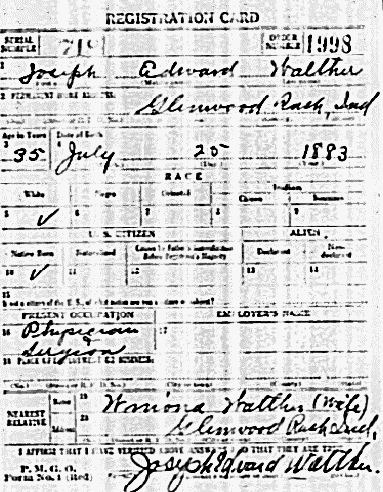 REGISTRATION CARD
SERIAL NUMBER 718 ORDER NUMBER 1998
1 Joseph Edward Walther
2 PERMANENT HOME ADDRESS
Glenwood Rush, Ind
Age in Years Date of Birth
3 35 4 July 25 1883
RACE
White Negro Oriental Indian
Citizen Noncitizen
5 ✓ 6 7 8 9
U. S. CITIZEN ALIEN
Native Born Naturalized Citizen by Father's Naturalization Before Registrant's Majority Declarant Non-declarant
10 ✓ 11 12 13 14
15
If not a citizen of the U. S., of what nation are you a citizen or subject?
PRESENT OCCUPATION EMPLOYER'S NAME
16 Physician 17
& Surgeon
18 PLACE OF EMPLOYMENT OR BUSINESS
NEAREST RELATIVE
Name 19 Winona Walther (Wife)
Address 20 Glenwood Rush Ind.
I AFFIRM THAT I HAVE VERIFIED ABOVE ANSWERS THAT THEY ARE TRUE
P. M. G. O.
Form No. 1 (Red) Joseph Edward Walther.